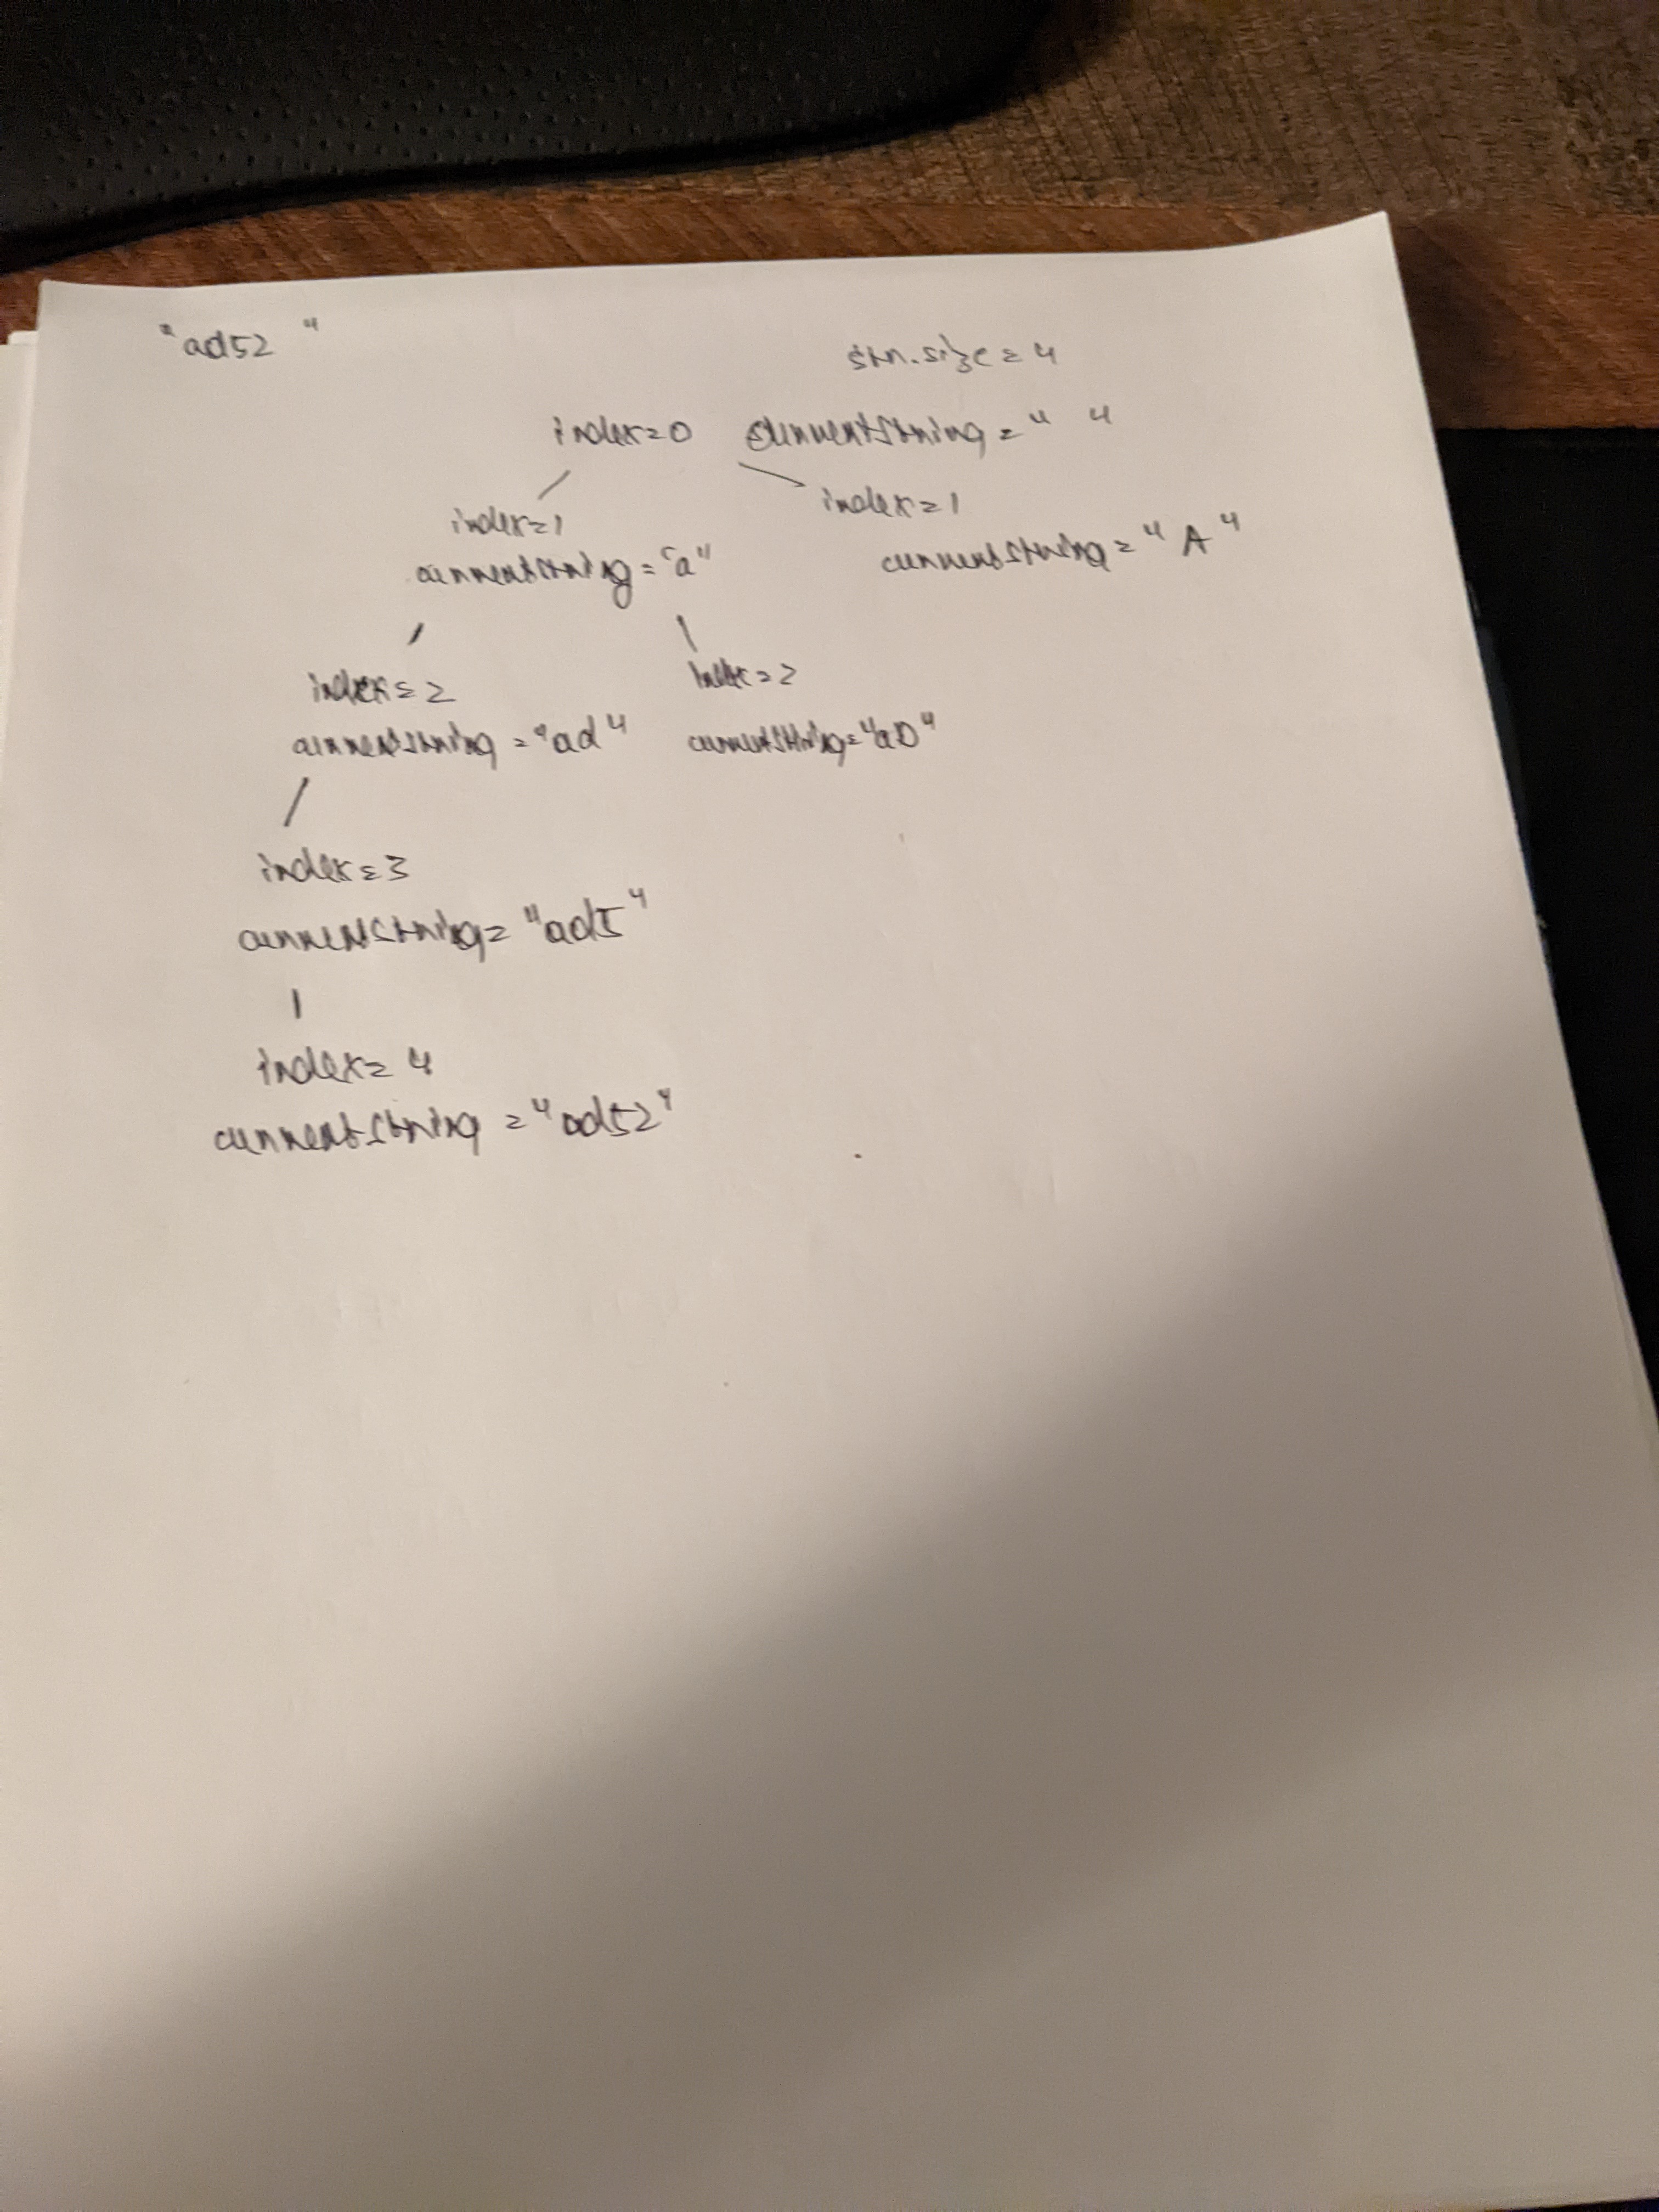 "ad52 "
str.size = 4
index=0 currentString = " "
index=1
index=1
currentString = "a"
currentString = "A"
index = 2
index = 2
currentString = "ad"
currentString = "aD"
index = 3
currentString = "ad5"
index = 4
currentString = "ad52"